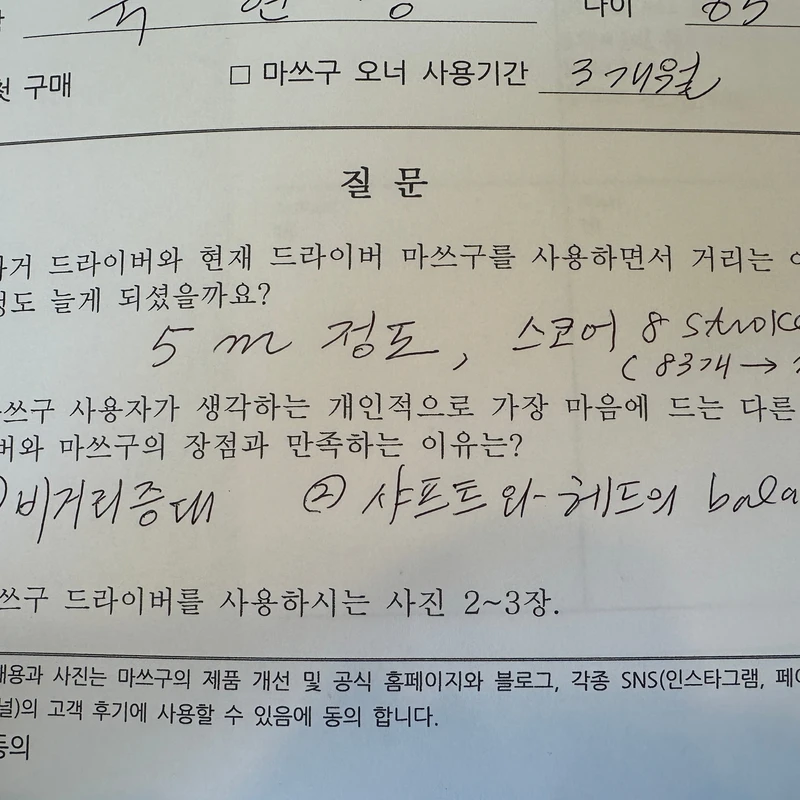 현 나이 65
첫 구매 □ 마쓰구 오너 사용기간 3개월
질 문
과거 드라이버와 현재 드라이버 마쓰구를 사용하면서 거리는
정도 늘게 되셨을까요?
5 m 정도, 스코어 8 stroke
( 83개 →
마쓰구 사용자가 생각하는 개인적으로 가장 마음에 드는 다른
버와 마쓰구의 장점과 만족하는 이유는?
비거리증대 ② 샤프트와 헤드의 bala
쓰구 드라이버를 사용하시는 사진 2~3장.
내용과 사진는 마쓰구의 제품 개선 및 공식 홈페이지와 블로그, 각종 SNS(인스타그램, 페이
널)의 고객 후기에 사용할 수 있음에 동의 합니다.
동의